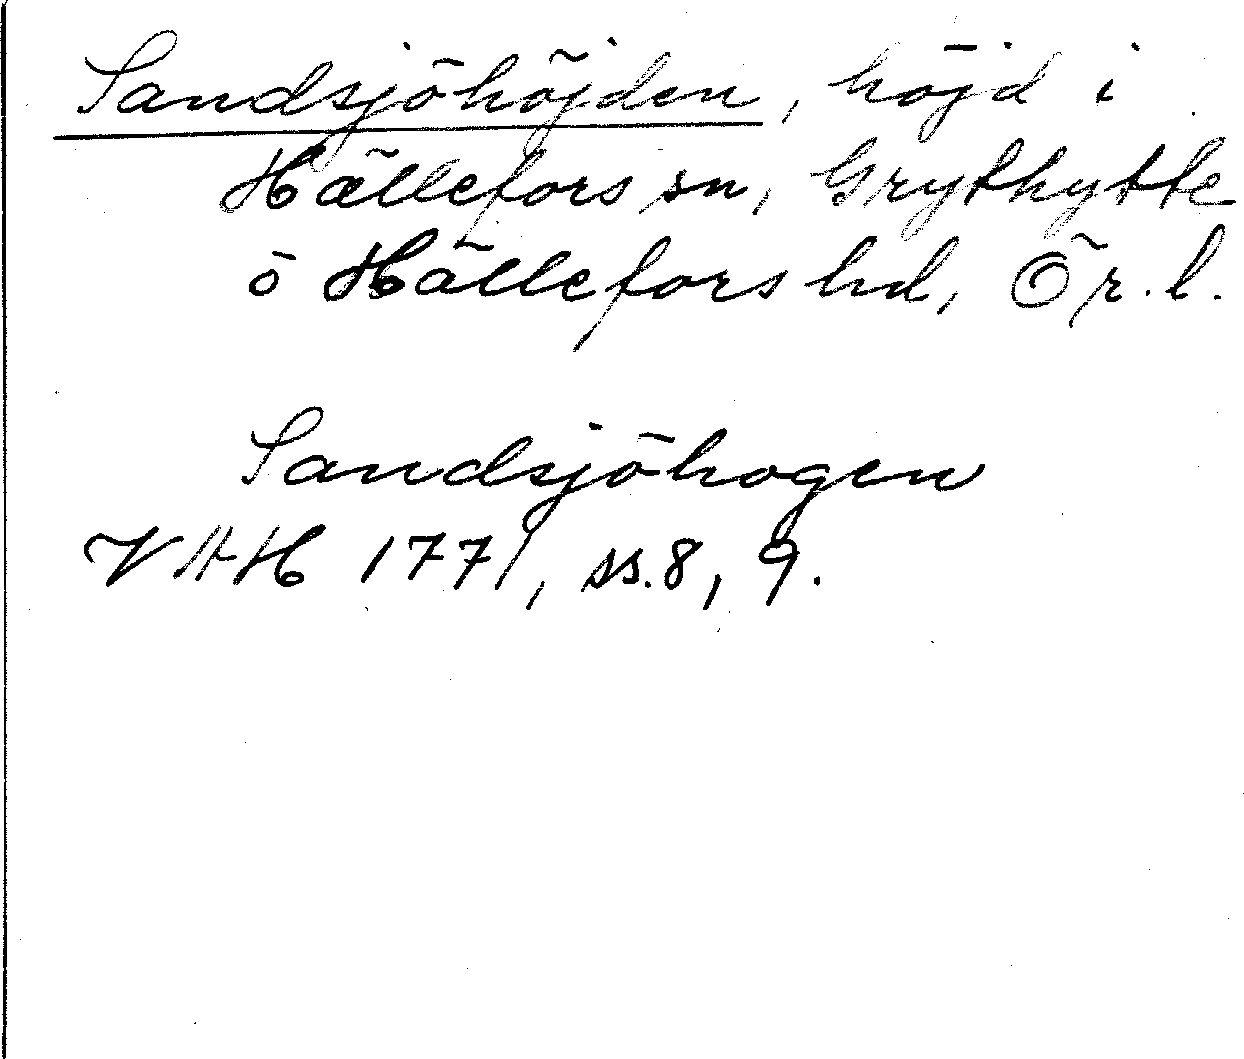 Sandsjöhöjden, höjd i
Hällefors sn, Grythytte
o Hällefors hd, Ör. l.
Sandsjöhogen
VAH 1771, ss. 8, 9.